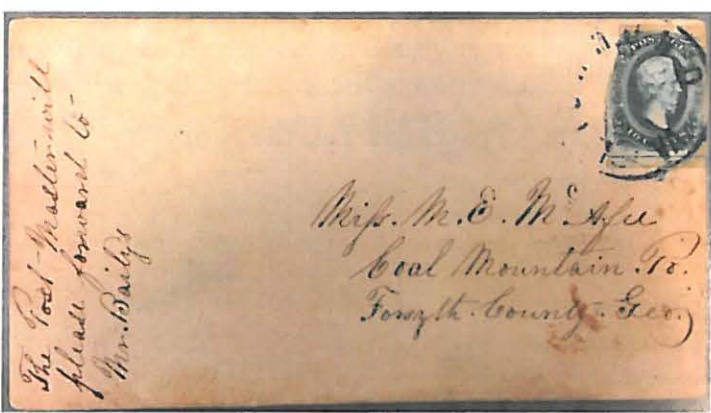 The Post-Master will
please forward to
Mr. Bailys
POSTAGE
Miss. M. E. McAfee
Coal Mountain. Po.
Forsyth. County. Geo.